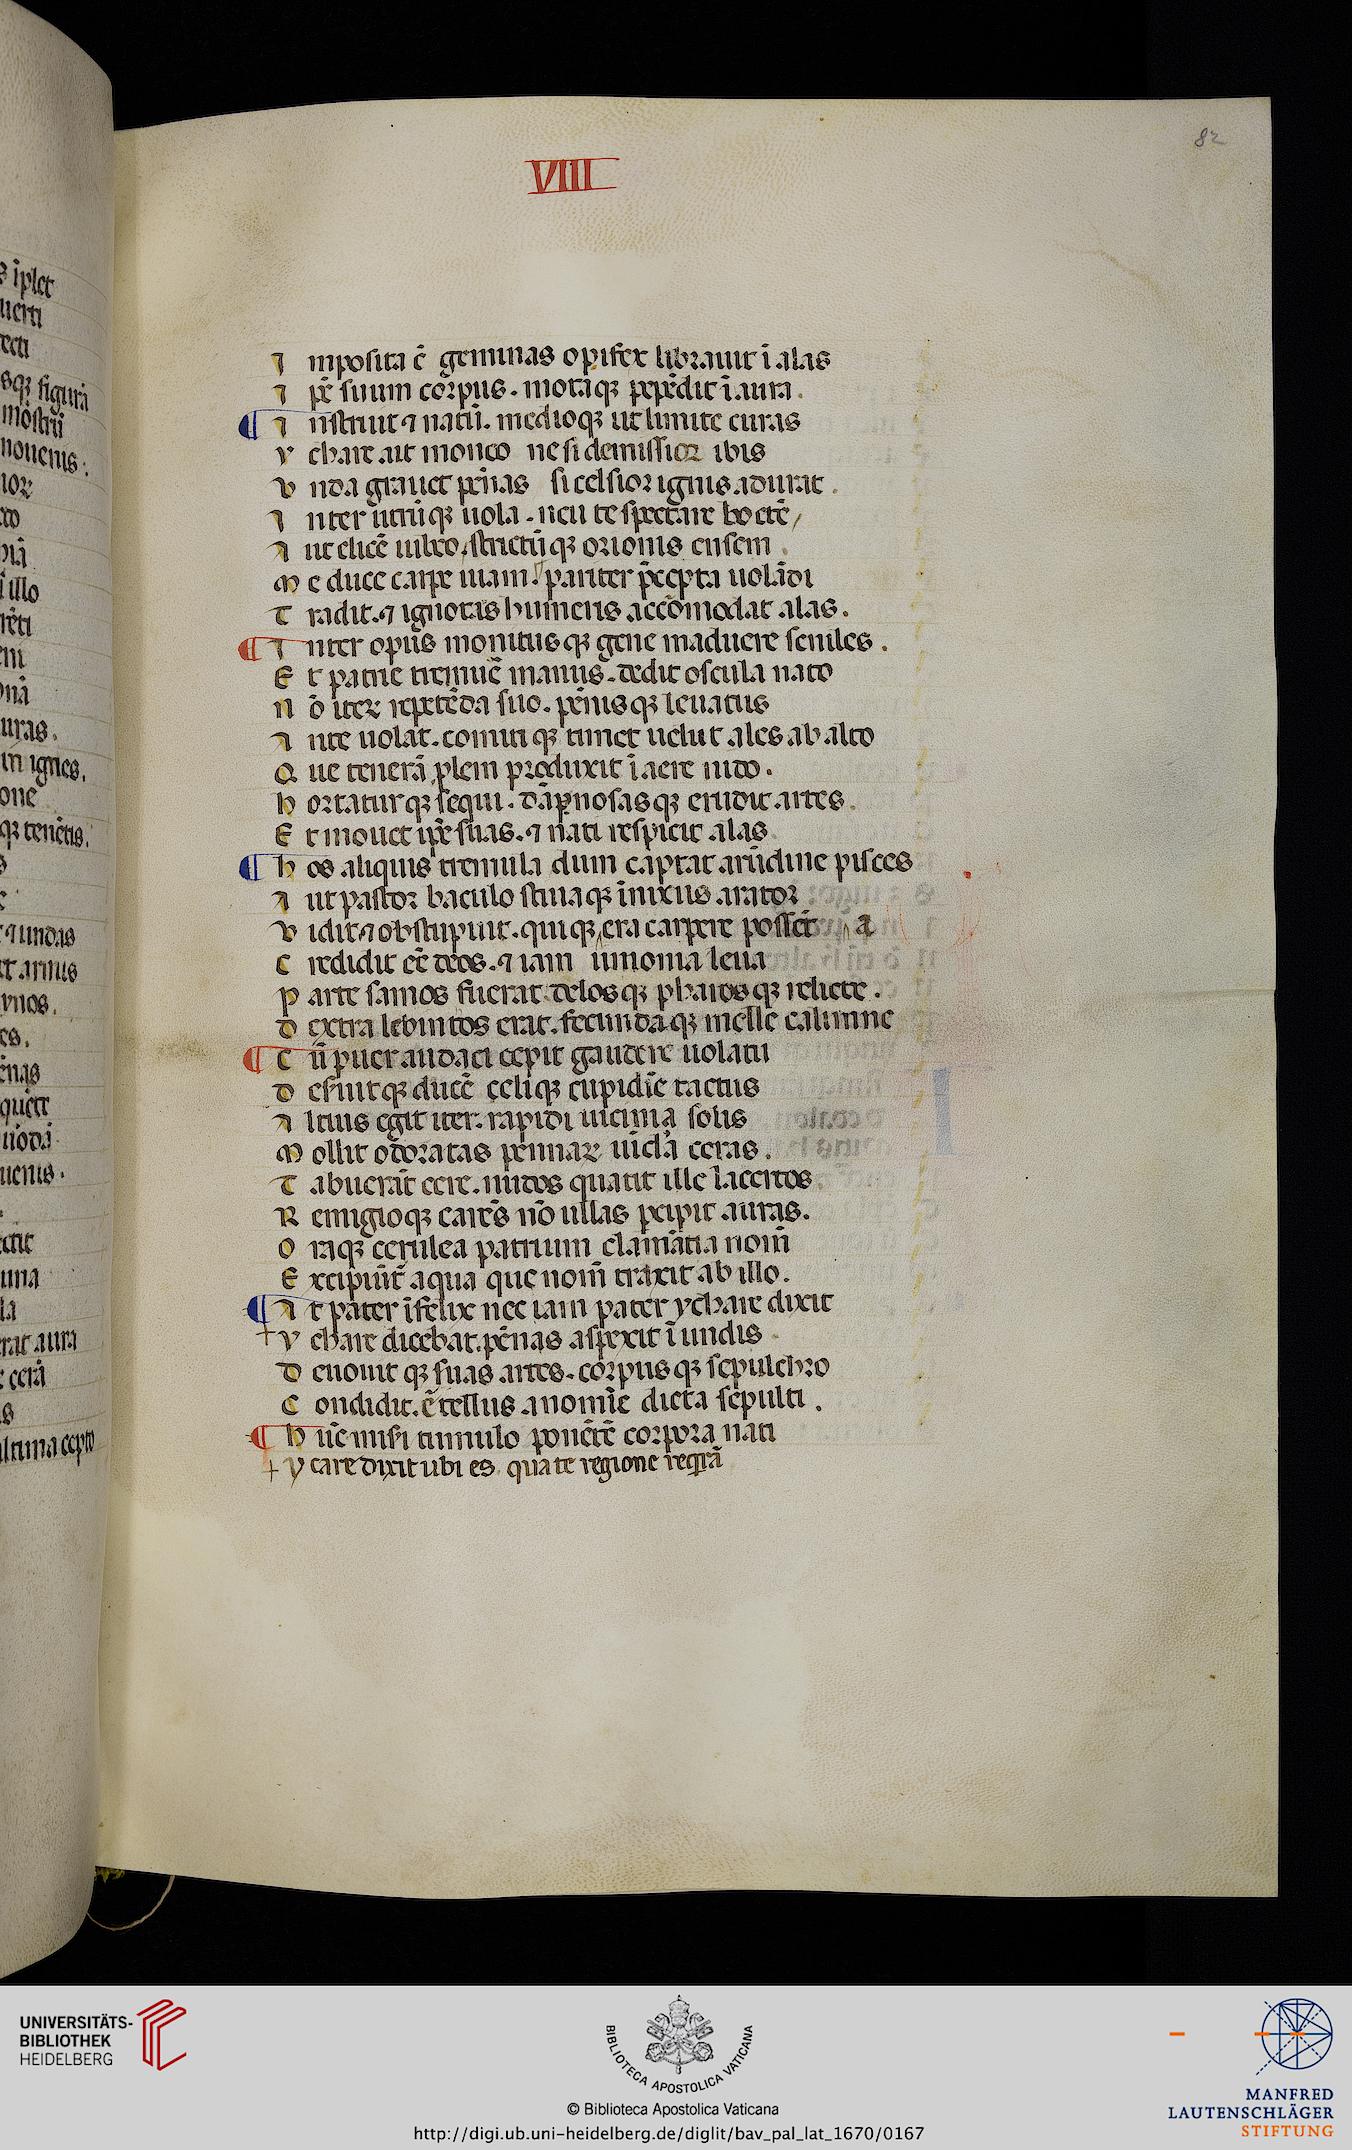 82
VIII
I mposita ẽ geminas opifex librauit ĩ alas
I pẽ suum corpus. motaqꝫ pepẽdit ĩ aura.
¶ I nstruit ⁊ natũ. medioqꝫ ut limite curas
Y chare ait moneo ne si demissior ibis
V nda grauet pẽnas si celsior ignis adurat.
I nter ũtrũqꝫ uola. neu te spectare boetẽ,
A ut elicẽ iubeo, strictũqꝫ orionis ensem.
M e duce carpe uiam. pariter p̃cepta uolãdi
T radit. ⁊ ignotas humeris accõmodat alas.
¶ I nter opus monitusqꝫ gene maduere seniles.
E t patrie tremuẽ manus. dedit oscula nato
N õ iteꝝ repetẽda suo. pẽnisqꝫ leuatus
A nte uolat. comitiqꝫ timet uelut ales ab alto
Q ue tenerã ꝓlem produxit ĩ aere nido.
H ortaturqꝫ sequi. dãpnosasqꝫ erudit artes.
E t mouet ip̃e suas. ⁊ nati respicit alas
¶ H os aliquis tremula dum captat arũdine pisces
A ut pastor baculo stiuaqꝫ ĩnixus arator
V idit ⁊ obstupuit. quiqꝫ era carpere possẽt a
C redidit eẽ deos. ⁊ iam iunonia leua
P arte samos fuerat. delosqꝫ pharosqꝫ relicte.
D extra lebintos erat. fecundaqꝫ melle calimne
¶ C ũ puer audaci cepit gaudere uolatu
D eseruitqꝫ ducẽ celiqꝫ cupidĩe tactus
A ltius egit iter. rapidi uicinia solis
M ollit odoratas pẽnnaꝝ uĩcla ceras.
T abuerãt cere. nudos quatit ille lacertos.
R emigioqꝫ carẽs nõ ullas ꝑcipit auras.
O raqꝫ cerulea patrium clamãtia nom̃
E xcipiũt̃ aqua que nom̃ traxit ab illo.
¶ A t pater ĩfelix nec iam pater ychare dixit
+ Y chare dicebat. pẽnas aspexit ĩ undis
D euouit qꝫ suas artes. corpusqꝫ sepulchro
C ondidit. ẽ tellus a nomĩe dicta sepulti.
¶ H ũc misi tumulo ponẽtẽ corpora nati
+ Y care dixit ubi es qua te regione reqꝛã
UNIVERSITÄTS-
BIBLIOTHEK
HEIDELBERG
BIBLIOTECA APOSTOLICA VATICANA
© Biblioteca Apostolica Vaticana
http://digi.ub.uni-heidelberg.de/diglit/bav_pal_lat_1670/0167
MANFRED
LAUTENSCHLÄGER
STIFTUNG